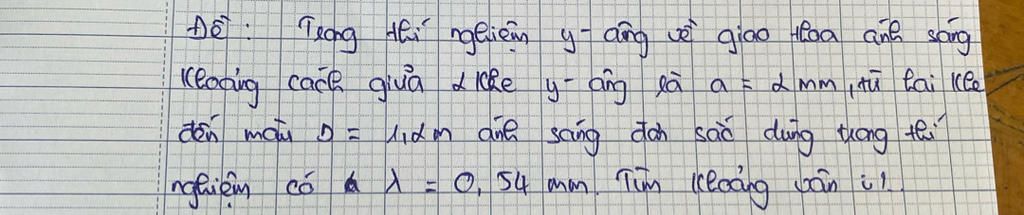 Đề: Trong thí nghiệm y-âng về giao thoa ánh sáng
khoảng cách giữa 2 khe y-âng là a = 2 mm, từ hai khe
đến màn D = 1,2m ánh sáng đơn sắc dùng trong thí
nghiệm có λ = 0,54 mm. Tìm khoảng vân i?